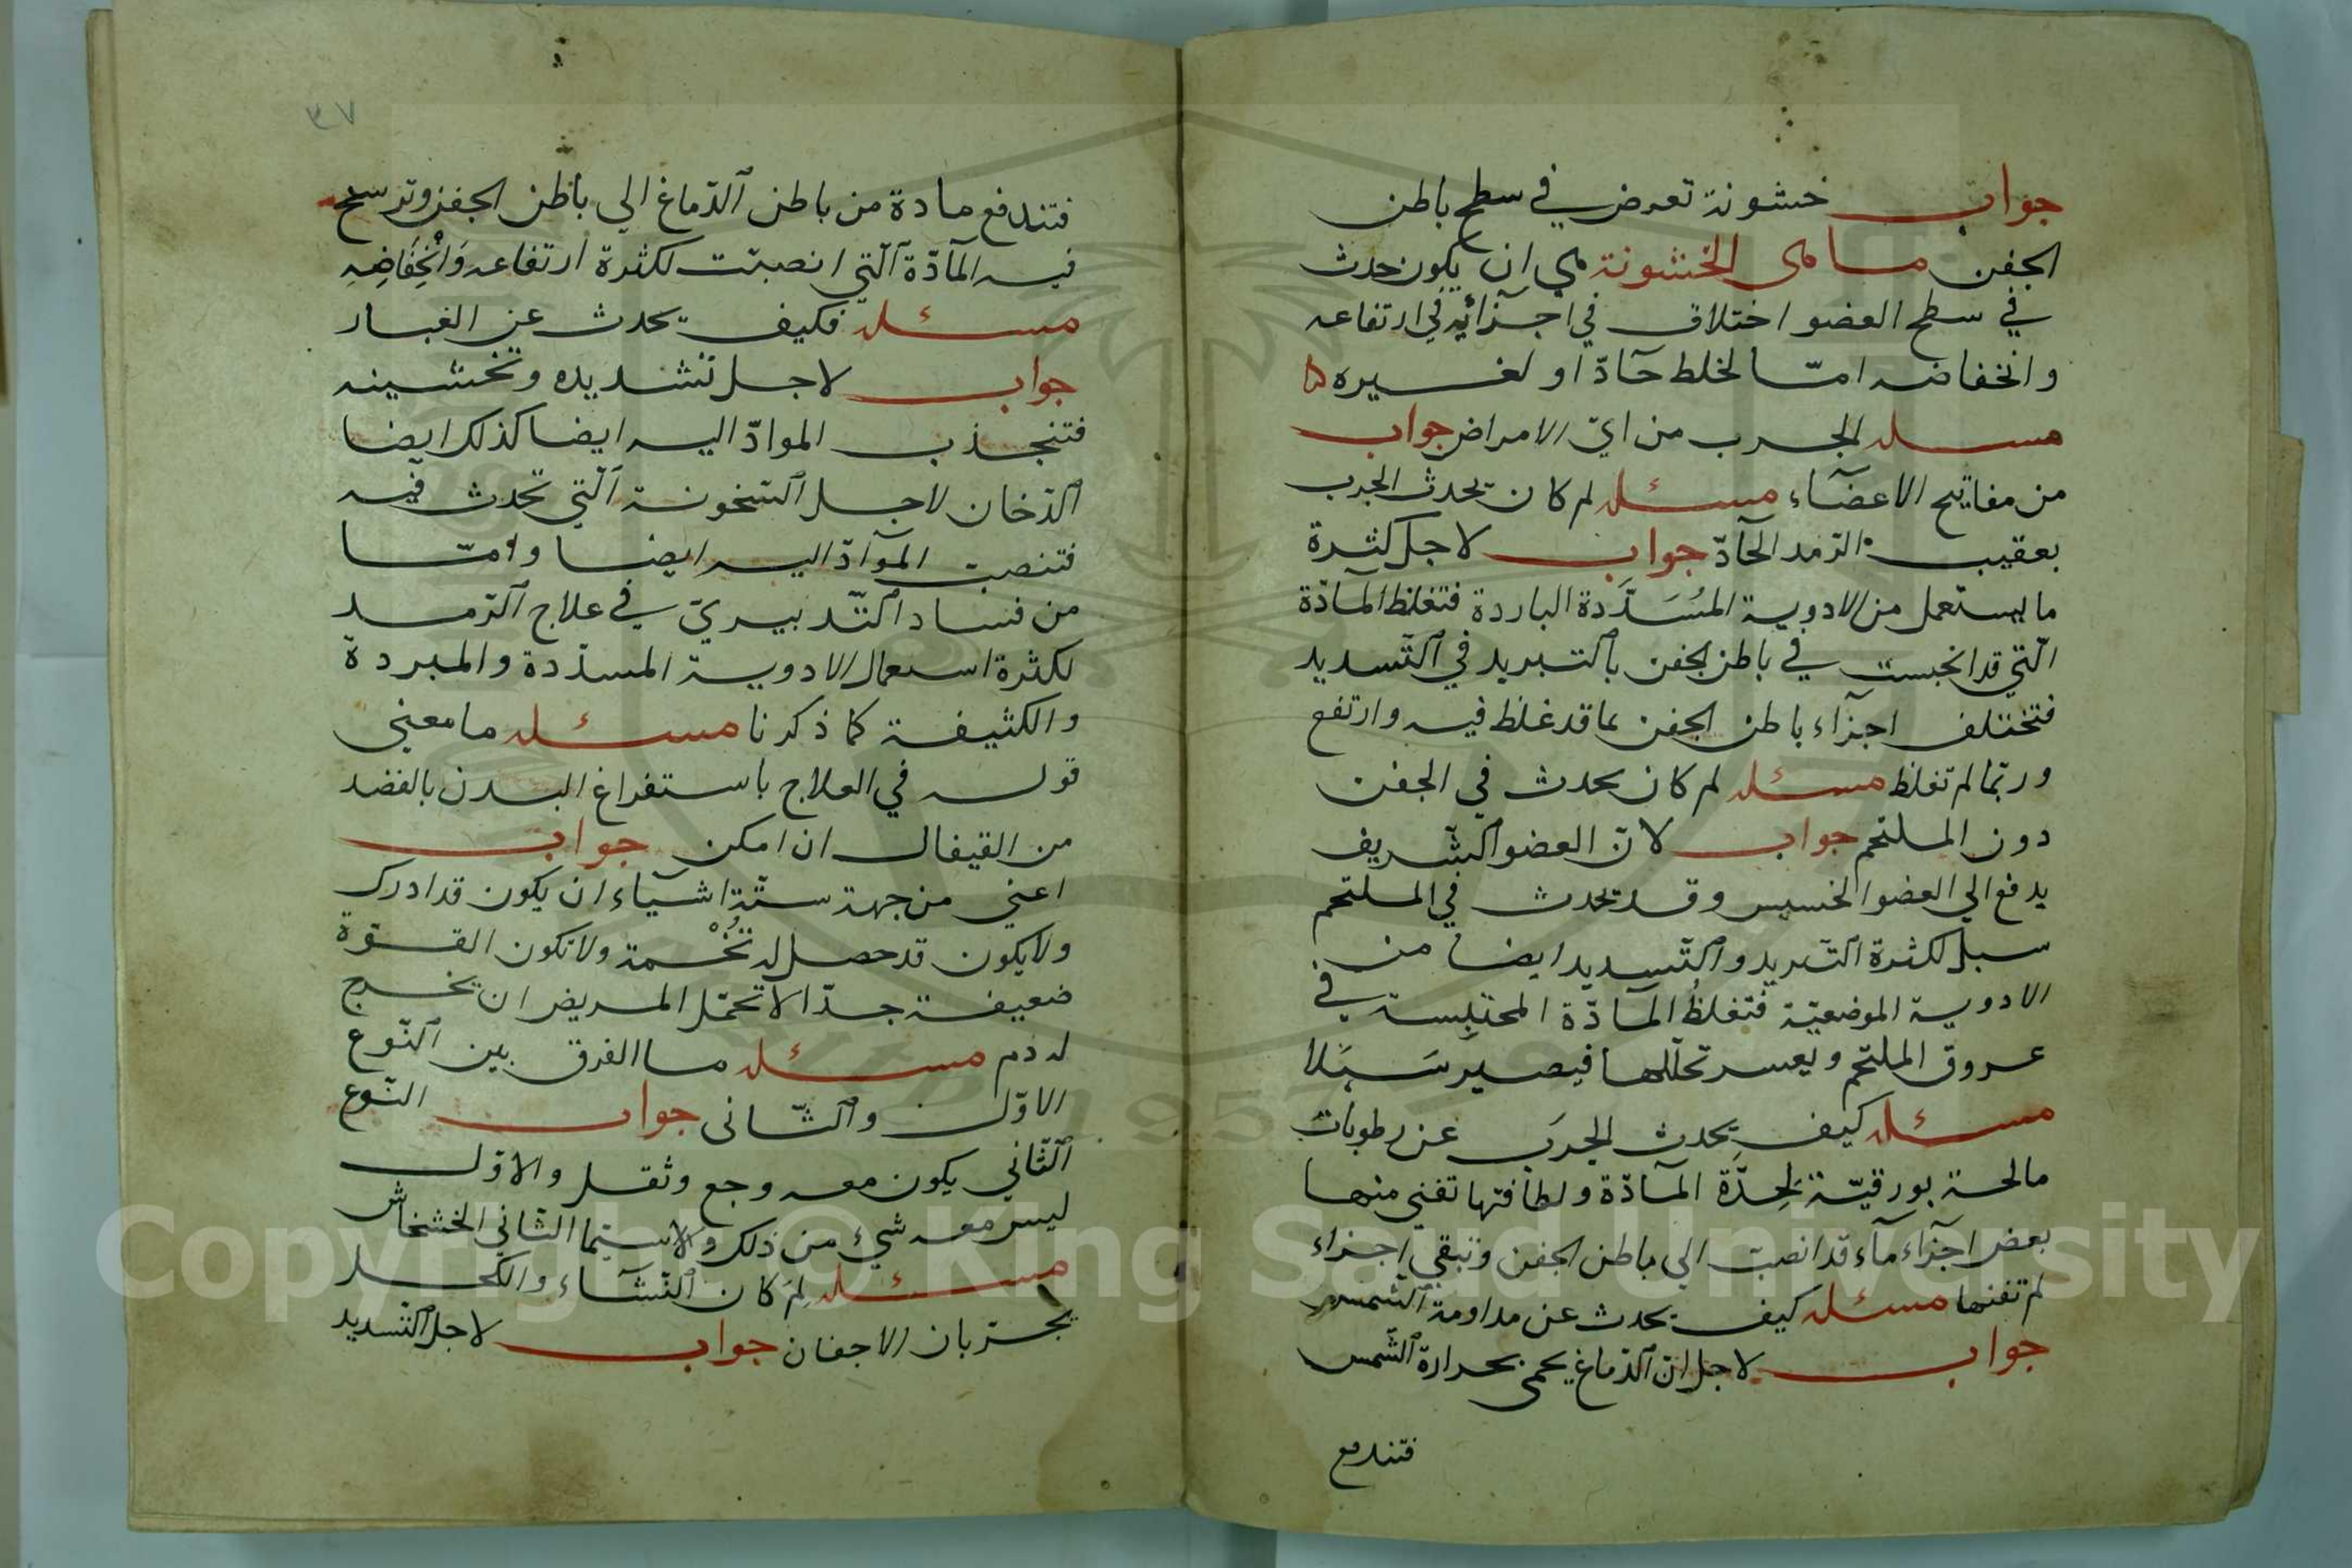 جواب خشونة تعرض في سطح باطن
الجفن ما هى الخشونة هي ان يكون حدث
في سطح العضو اختلاف في اجزائه في ارتفاعه
وانخفاضه امّا لخلط حادّ او لغيره
مسله الجرب من ايّ الامراض جواب
من مفاتيح الاعضآء مسئله لم كان يحدث الجرب
بعقيب الرّمد الحآدّ جواب لاجل كثرة
ما يستعمل من الادوية المُسَدَّدة الباردة فتغلظ المآدّة
الّتي قد انحبست في باطن الجفن بالتبريد في التّسديد
فتختلف اجزآء باطن الجفن بما قد غلظ فيه وارتفع
وربّما لم تغلظ مسئله لم كان يحدث في الجفن
دون الملتحم جواب لانّ العضو الشّريف
يدفع الي العضو الخسيس وقد يحدث في الملتحم
سبل لكثرة التّبريد والتّسديد ايضا من
الادوية الموضعيّة فتغلظُ المآدّة المحتبِسة في
عروق الملتحم ويعسر تحلّلها فيصير سَبَلا
مسئله كيف يحدث الجرَب عن رطوبات
مالحة بورقيّة لِحِدَّة المآدّة ولطافتها تفني منها
بعض اجزآء مآء قد انصبّ الي باطن الجفن وتبقي اجزاء
لم تفنها مسئله كيف يحدث عن مداومة الشّمس
جواب لاجل انّ الدّماغ يحمى بحرارة الشّمس
فتندفع
٣٧
فتندفع مادة من باطن الدّماغ الي باطن الجفن وترسخ
فيه المآدّة الّتي انصبّت لكثرة ارتفاعه وَانْخِفَاضِهِ
مسئله فكيف يحدث عن الغبار
جواب لاجل تشديده وتخشينه
فتنجذب الموادّ اليه ايضا كذلك ايضا
الدّخان لاجل السّخونة الّتي تحدث فيه
فتنصبّ الموآدّ اليه ايضا وامّا
من فساد التّدبيريّ في علاج الرّمد
لكثرة استعمال الادوية المسدّدة والمبردة
والكثيفة كما ذكرنا مسئله ما معني
قوله في العلاج باستفراغ البدن بالفصد
من القيفال ان امكن جواب
اعني من جهة ستّة اشيآء ان يكون قد ادرك
ولا يكون قد حصل له تُخْمة ولا تكون القوّة
ضعيفة جدّا لا تحمّل المريض ان يخرج
له دم مسئله ما الفرق بين النّوع
الاوّل والثّانى جواب النّوع
الثّاني يكون معه وجع وثقل والاوّل
ليس معه شيء من ذلك ولا سيّما الثّاني الخشخاش
مسئله لِمَ كان النّشآء والكحل
يجرّبان الاجفان جواب لاجل التّسديد
Copyright © King Saud University
1957